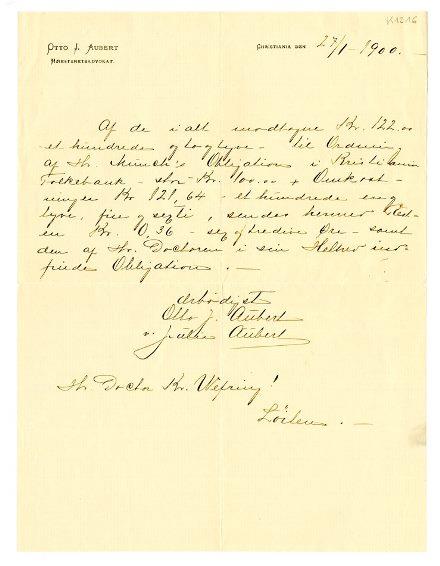 K1216
OTTO J. AUBERT
HØIESTERETSADVOKAT.
CHRISTIANIA DEN 27/1 - 1900.
Af de ialt modtagne Kr. 122.00
et hundrede og to og tyve - til Ordning
af Hr. Munch's Obligation i Kristiania
Folkebank - stor Kr. 100.00 + Omkost-
ninger Kr 121,64 - et hundrede en og
tyve, fire og sexti, sendes herved Rest-
en Kr. 0,36 - sex og tredive Øre - samt
den af Hr. Doctoren i sin Helhed ind-
friede Obligation. -
Ærbødigst
Otto J. Aubert
v. Aubert
Hr. Doctor Kr.
Løiten. -